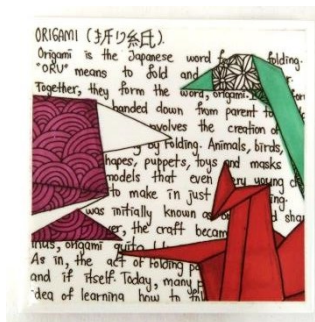 ORIGAMI (折り紙氏).
Origami is the Japanese word f folding.
"ORU" means to fold and
Together, they form the word, origami.
handed down from parent to
volves the creation of
by folding. Animals, birds,
hapes, puppets, toys and masks
models that even ery young ch
to make in just ing.
was initially known as d sha
er, the craft becam
thus, origami quite
As in, the act of folding pa
and if itself. Today, many p
idea of learning how to